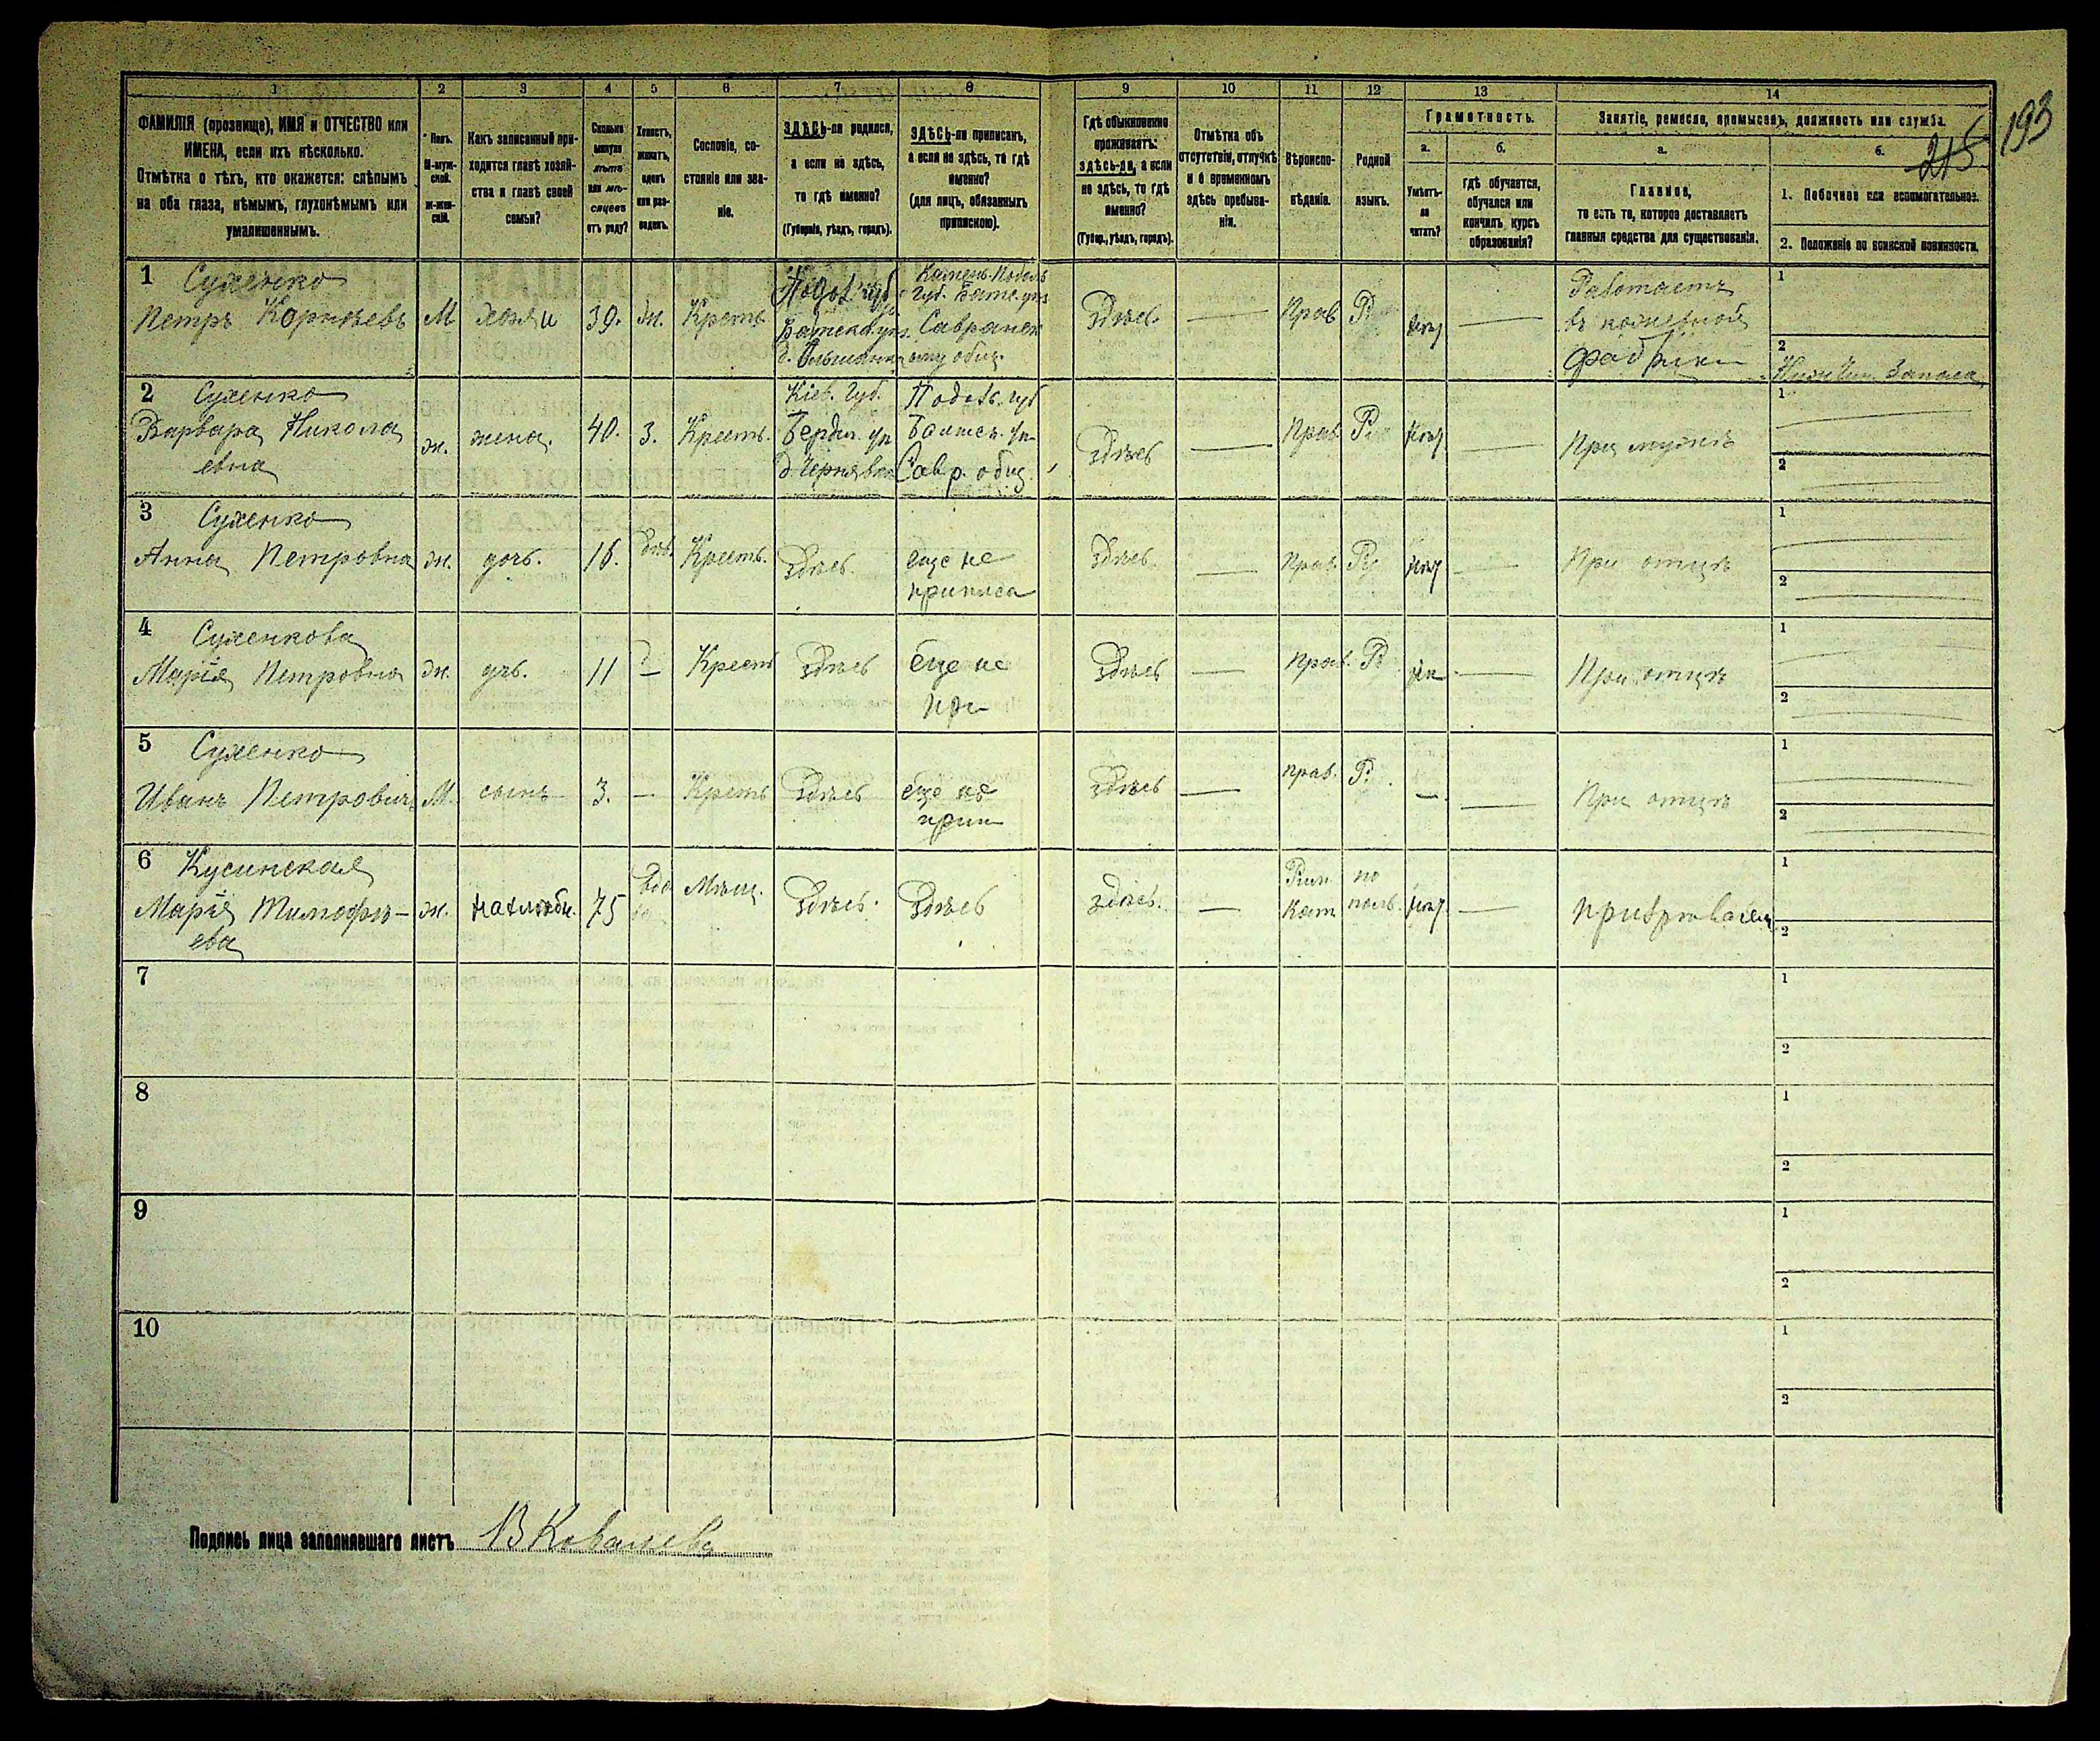 193
215
1 2 3 4 5 6 7 8 9 10 11 12 13 14
ФАМИЛІЯ (прозвище), ИМЯ и ОТЧЕСТВО или
ИМЕНА, если ихъ нѣсколько.
Отмѣтка о тѣхъ, кто окажется: слѣпымъ
на оба глаза, нѣмымъ, глухонѣмымъ или
умалишеннымъ.
Полъ.
М-муж-
ской.
ж-жен-
скій.
Какъ записанный при-
ходится главѣ хозяй-
ства и главѣ своей
семьи?
Сколько
минуло
лѣтъ
или мѣ-
сяцевъ
отъ роду?
Холостъ,
женатъ,
вдовъ
или раз-
веденъ.
Сословіе, со-
стояніе или зва-
ніе.
ЗДѢСЬ-ли родился,
а если не здѣсь,
то гдѣ именно?
(Губернія, уѣздъ, городъ).
ЗДѢСЬ-ли приписанъ,
а если не здѣсь, то гдѣ
именно?
(для лицъ, обязанныхъ
припискою).
Гдѣ обыкновенно
проживаетъ:
здѣсь-ли, а если
не здѣсь, то гдѣ
именно?
(Губер., уѣздъ, городъ).
Отмѣтка объ
отсутствіи, отлучкѣ
и о временномъ
здѣсь пребыва-
ніи.
Вѣроиспо-
вѣданіе.
Родной
языкъ.
Грамотность.
а.
Умѣетъ-
ли
читать?
б.
Гдѣ обучается,
обучался или
кончилъ курсъ
образованія?
Занятіе, ремесло, промыселъ, должность или служба.
а.
Главное,
то есть то, которое доставляетъ
главныя средства для существованія.
б.
1. Побочное или вспомогательное.
2. Положеніе по воинской повинности.
1 Сухенко
Петръ Корнѣевъ М хозяи 39. Крест.
Подол. губ.
Камень-Подоль
губ.
здѣс. — Прав Р —
Работаетъ
въ
фабрики
1
2
Запаса
2 Сухенко
Варвара Никола
евна ж. жена. 40. З. Крест.
Кіев. губ.
Берди. уп
Подоль. губ
Савр. общ.
здѣсь — Прав — При мужѣ
1
2
3 Сухенко
Анна Петровна ж. дочь. 16. Крест. здѣсь.
еще не
приписа
здѣсь. — Прав — При отцѣ
1
2
4 Сухенкова
Марія Петровна ж. 11 — Крест здѣсь
еще не
при
здѣсь — Прав. Р — При отцѣ
1
2
5 Сухенко
Иванъ Петровичъ М. сынъ 3. — Крест здѣсь
еще не
прип
здѣсь — прав. Р. — — При отцѣ
1
2
6 Кусинская
Марія Тимофѣ-
ева ж. 75 вдо Мѣщ. здѣсь. здѣсь
здѣсь. —
Рим
Кат
по
поль. —
1
2
7
1
2
8
1
2
9
1
2
10
1
2
Подпись лица заполнявшаго листъ В Ковалевъ